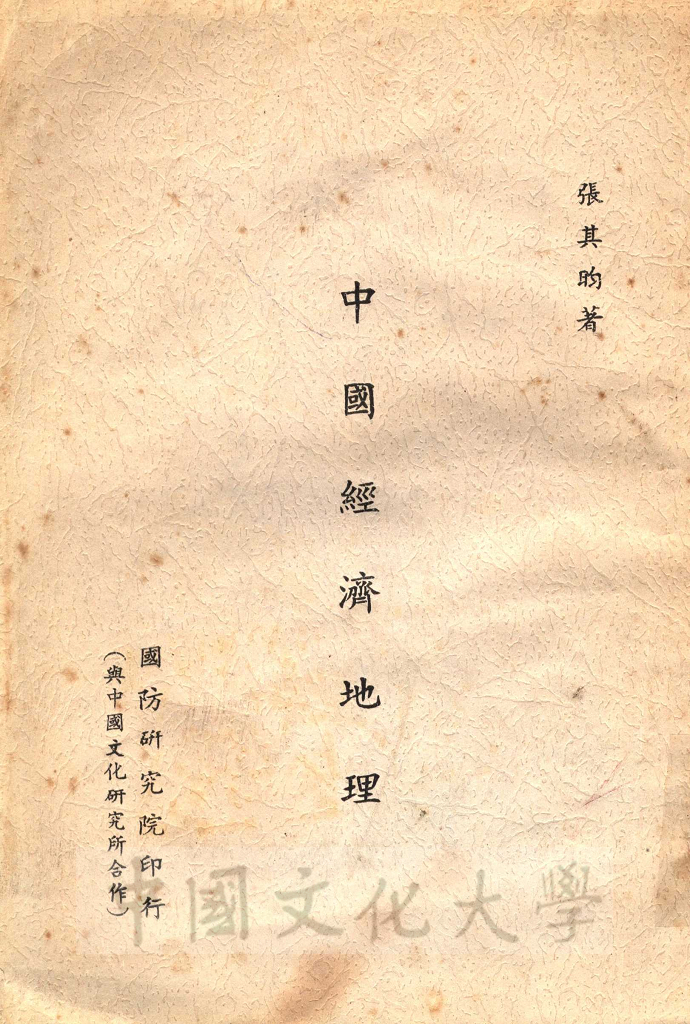 張其昀著
中國經濟地理
國防研究院印行
(與中國文化研究所合作)
中國文化大學